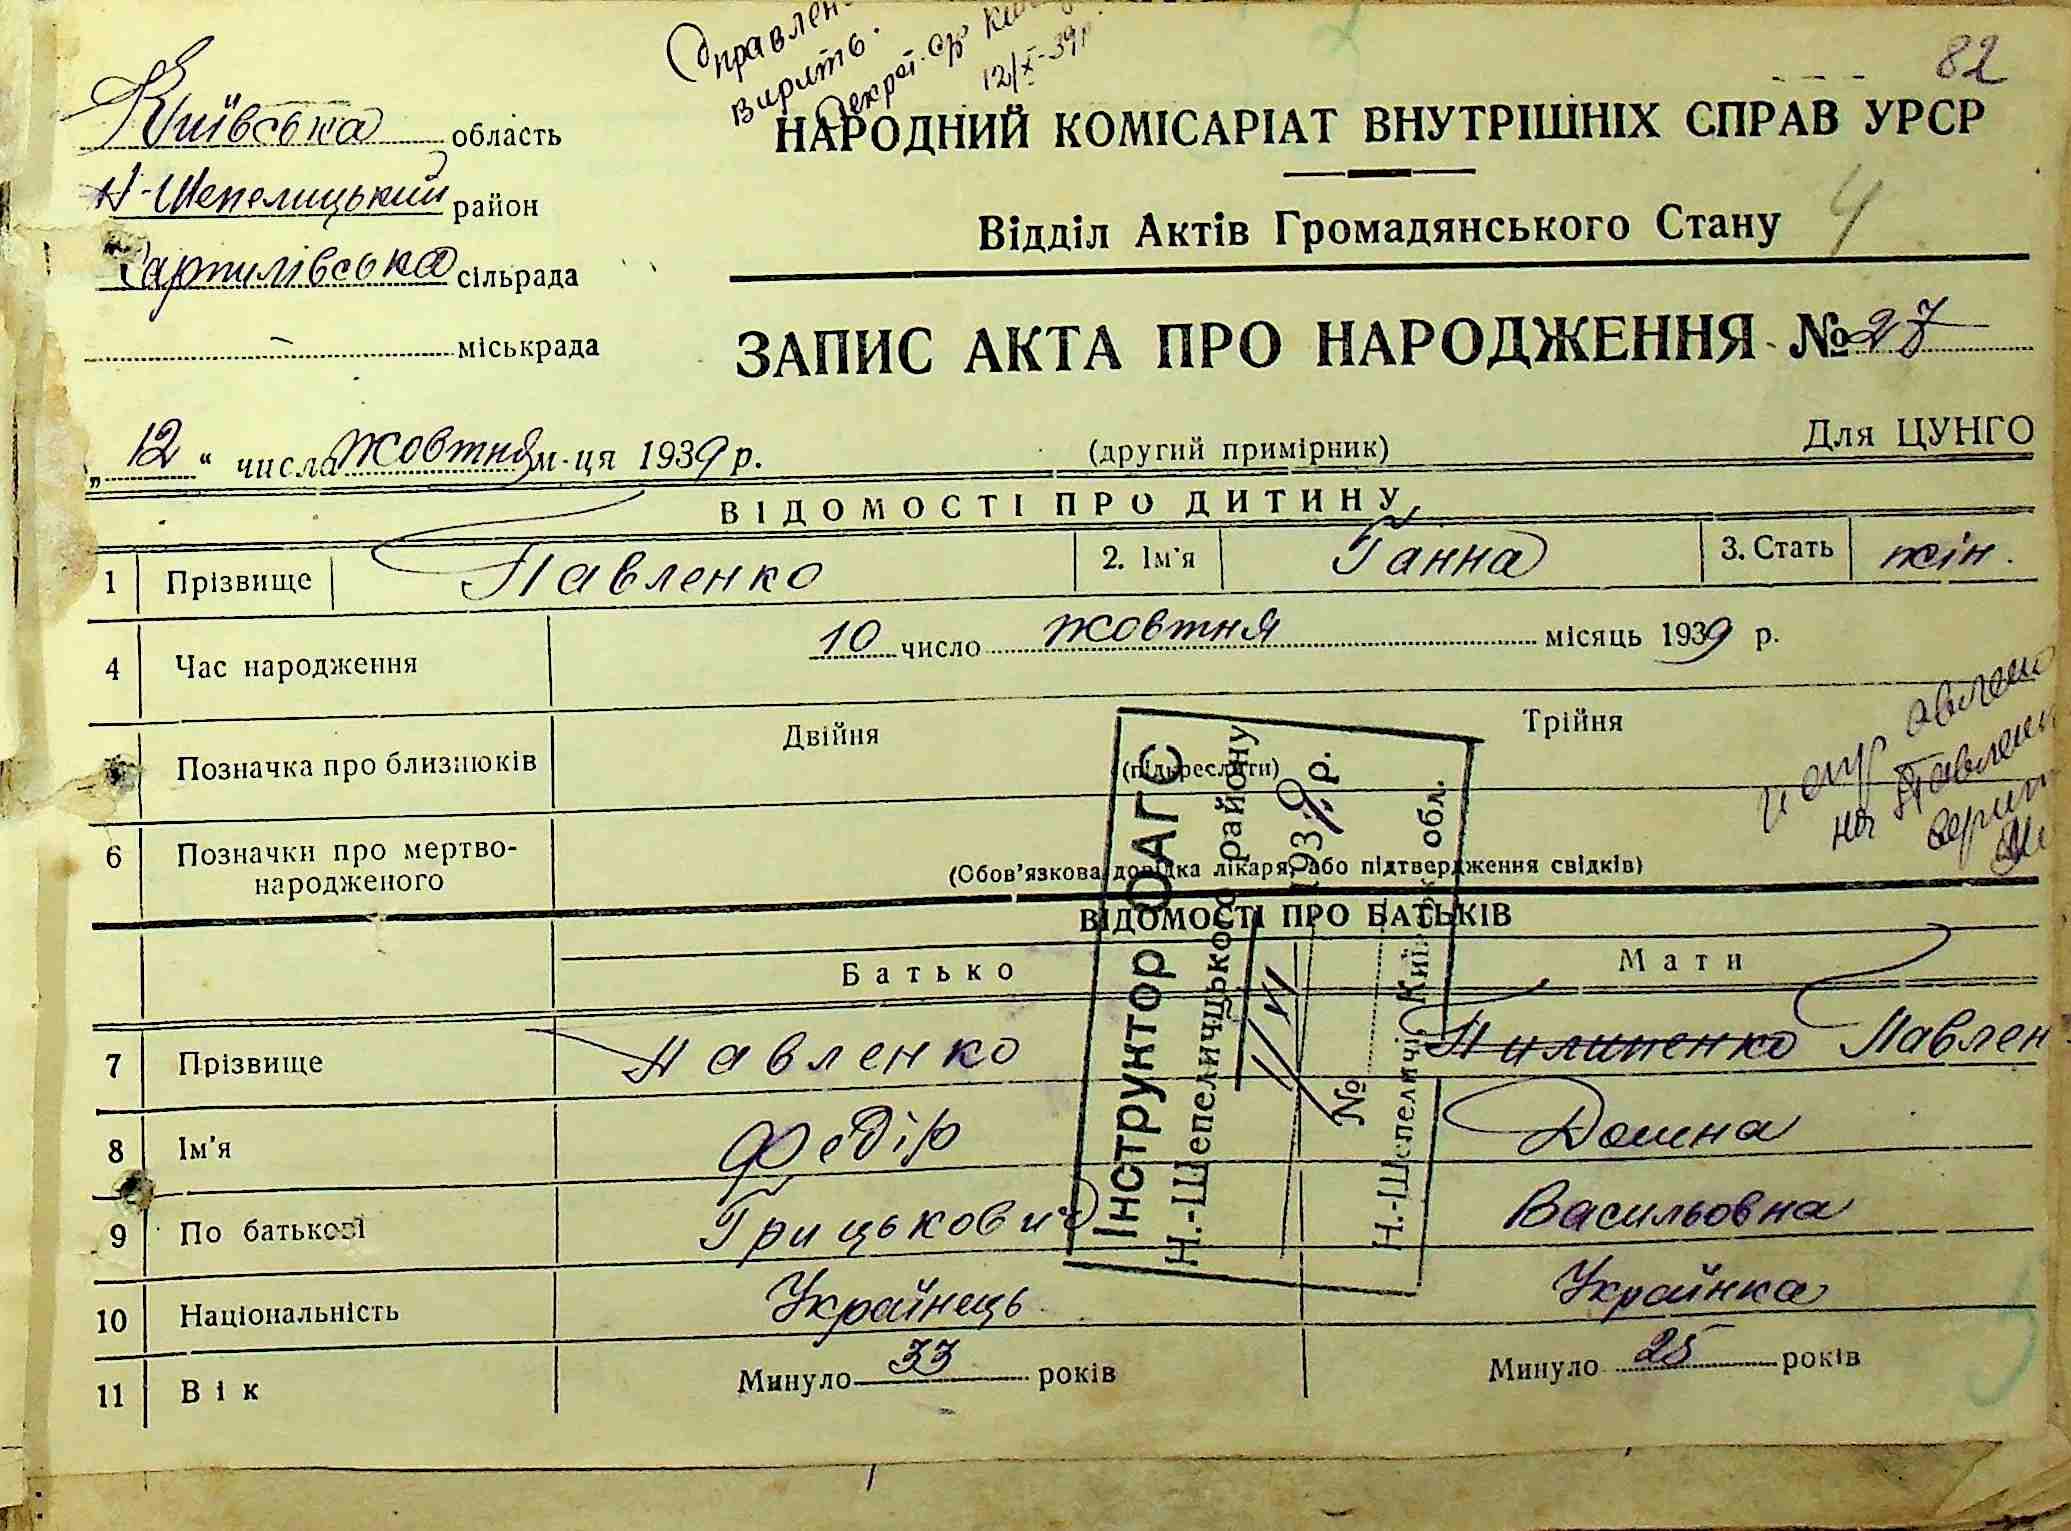 82
Київська область
Н-Шепелицький район
сільрада
міськрада
12/X-39р.
НАРОДНИЙ КОМІСАРІАТ ВНУТРІШНІХ СПРАВ УРСР
Відділ Актів Громадянського Стану
4
ЗАПИС АКТА ПРО НАРОДЖЕННЯ №27
„12“ числа жовтня м-ця 1939 р.
(другий примірник)
Для ЦУНГО
ВІДОМОСТІ ПРО ДИТИНУ
1 Прізвище Павленко 2. Ім'я Ганна 3. Стать жін.
4 Час народження 10 число жовтня місяць 1939 р.
Позначка про близнюків Двійня Трійня
(підкреслити)
6 Позначки про мертво-
народженого
(Обов'язкова довідка лікаря, або підтвердження свідків)
ВІДОМОСТІ ПРО БАТЬКІВ
Батько Мати
7 Прізвище Павленко Пилипенко Павлен
8 Ім'я Федір Домна
9 По батькові Грицькович Васильовна
10 Національність Українець Українка
11 Вік Минуло 33 років Минуло 25 років
Інструктор ОАГС
Н.-Шепеличцького району
1939 р.
№
Н.-Шепеличі, Київськ обл.
на Павлен